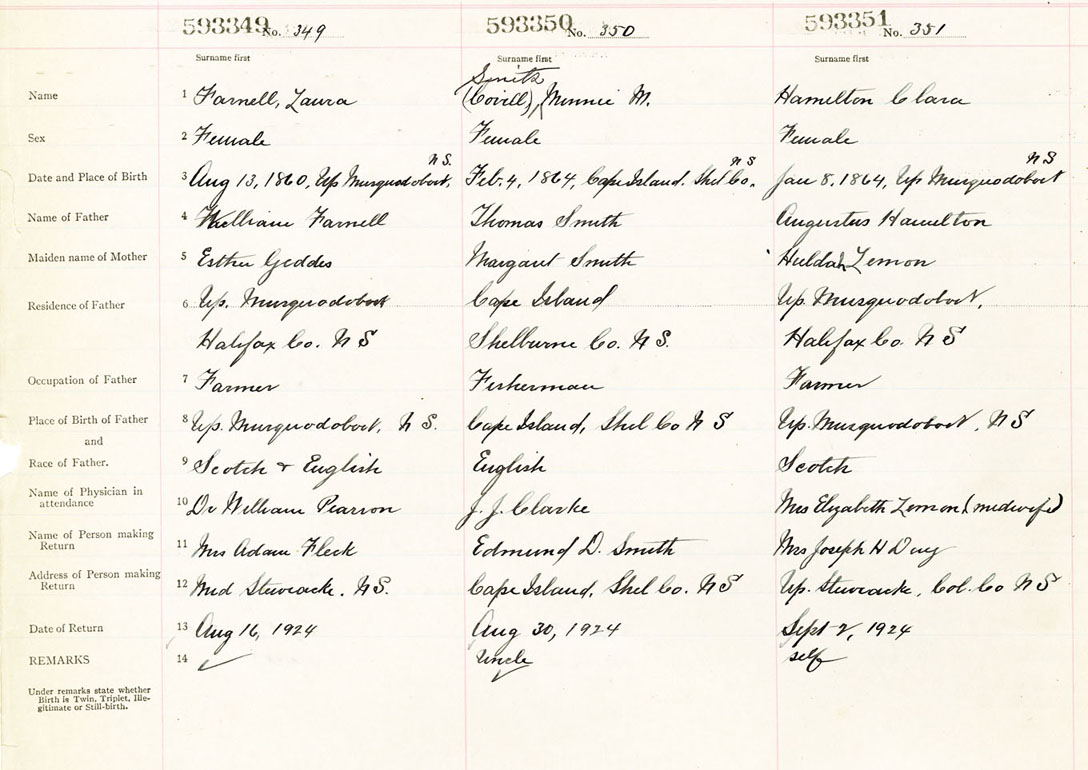 593349 No. 349 593350 No. 350 593351 No. 351
Surname first Surname first Surname first
Smith
Name 1 Farnell, Laura (Covill), Minnie M. Hamilton Clara
Sex 2 Female Female Female
N S. N S N S
Date and Place of Birth 3 Aug 13, 1860, Up Musquodoboit, Feb. 4, 1864, Cape Island. Shel Co. Jan 8, 1864, Up Musquodoboit
Name of Father 4 William Farnell Thomas Smith Augustus Hamilton
Maiden name of Mother 5 Esther Geddes Margaret Smith Huldah Lemon
Residence of Father 6 Up. Musquodoboit Cape Island Up. Musquodoboit,
Halifax Co. N S Shelburne Co. N S. Halifax Co. N S
Occupation of Father 7 Farmer Fisherman Farmer
Place of Birth of Father 8 Up. Musquodoboit, N S. Cape Island, Shel Co N S Up. Musquodoboit, N S
and
Race of Father. 9 Scotch & English English Scotch
Name of Physician in
attendance 10 Dr William Pearson J. J. Clarke Mrs Elizabeth Lemon (midwife)
Name of Person making
Return 11 Mrs Adam Fleck Edmund D. Smith Mrs Joseph H
Address of Person making
Return 12 Mid Stewiacke. N S. Cape Island, Shel Co. N S Up. Stewiacke, Col. Co N S
Date of Return 13 Aug 16, 1924 Aug 30, 1924 Sept 2, 1924
REMARKS 14 ✓ Uncle self
Under remarks state whether
Birth is Twin, Triplet, Ille-
gitimate or Still-birth.